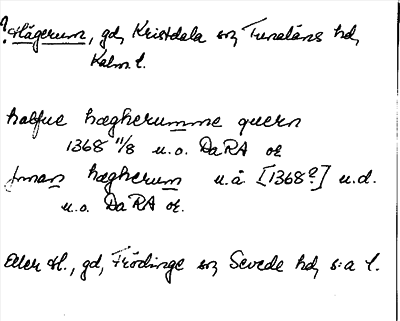 ? Hägerum, gd, Kristdala sn, Tunaläns hd,
Kalm. l.
halfue hægherumme quern
1368 11/8 u.o. DaRA or.
innan hægherum u.å [1368?] u.d.
u.o. DaRA or.
Eller H., gd, Frödinge sn, Sevede hd, s:a l.